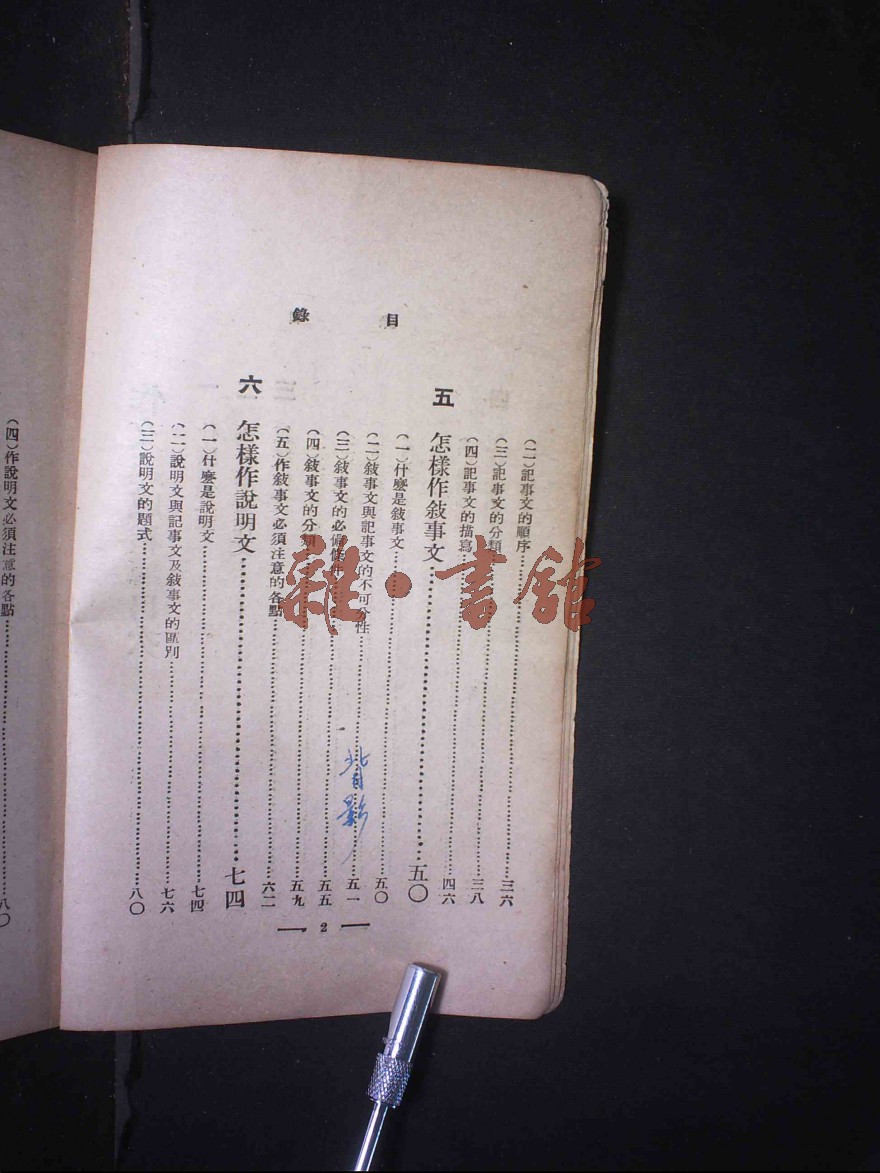 目錄
(二)記事文的順序……三六
(三)記事文的分類……三八
(四)記事文的描寫……四六
五 怎樣作敍事文……五〇
(一)什麼是敍事文……五〇
(二)敍事文與記事文的不可分性……五一
(三)敍事文的必備條件……五五
(四)敍事文的分類……五九
(五)作敍事文必須注意的各點……六二
六 怎樣作說明文……七四
(一)什麼是說明文……七四
(二)說明文與記事文及敍事文的區別……七六
(三)說明文的題式……八〇
2
背影
雜·書館
(四)作說明文必須注意的各點……八〇